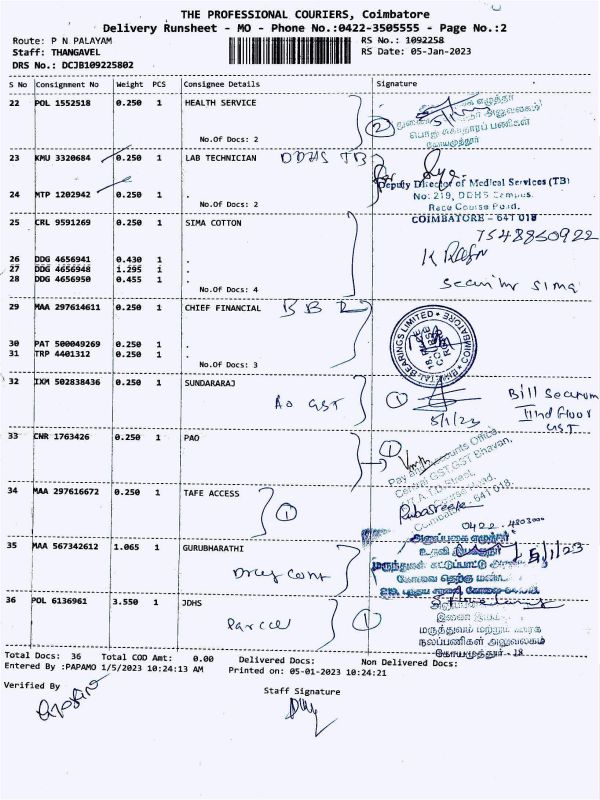 THE PROFESSIONAL COURIERS, Coimbatore
Delivery Runsheet - MO - Phone No.:0422-3505555 - Page No.:2
Route: P N PALAYAM
RS No.: 1092258
Staff: THANGAVEL
RS Date: 05-Jan-2023
DRS No.: DCJB109225802
S No Consignment No Weight PCS Consignee Details Signature
22 POL 1552518 0.250 1 HEALTH SERVICE
எழுத்தர்
2
No.Of Docs: 2
கோயமுத்தூர்
23 KMU 3320684 0.250 1 LAB TECHNICIAN DDHS TB
for
Deputy Director of Medical Services (TB)
24 MTP 1202942 0.250 1 .
No: 219, DDHS Campus,
No.Of Docs: 2
Race Course Road,
COIMBATORE - 641 018
25 CRL 9591269 0.250 1 SIMA COTTON
7548850922
26 DDG 4656941 0.430 1 .
27 DDG 4656948 1.295 1 .
28 DDG 4656950 0.455 1 .
Security sima
No.Of Docs: 4
29 MAA 297614611 0.250 1 CHIEF FINANCIAL B B L
BEARINGS LIMITED COIMBATORE
30 PAT 500049269 0.250 1 .
31 TRP 4401312 0.250 1 .
No.Of Docs: 3
32 IXM 502838436 0.250 1 SUNDARARAJ
Ao GST
1
5/1/23
Bill Section
IInd floor
GST
33 CNR 1763426 0.250 1 PAO
1
Pay and Accounts Office,
Central GST, GST Bhavan,
6/7 A.T.D. Street,
Race Course Road,
Coimbatore - 641 018.
34 MAA 297616672 0.250 1 TAFE ACCESS
1
0422-4803000
35 MAA 567342612 1.065 1 GURUBHARATHI
Drug Cont
5/1/23
அலுவலக எழுத்தர்
உதவி இயக்குநர்
மருந்துகள் கட்டுப்பாட்டு
கோவை தெற்கு மண்டலம்
36 POL 6136961 3.550 1 JDHS
Parcel
1
இணை இயக்குநர்
மருத்துவம் மற்றும் ஊரக
நலப்பணிகள் அலுவலகம்
கோயமுத்தூர் - 18
Total Docs: 36 Total COD Amt: 0.00 Delivered Docs: Non Delivered Docs:
Entered By :PAPAMO 1/5/2023 10:24:13 AM Printed on: 05-01-2023 10:24:21
Verified By
Staff Signature